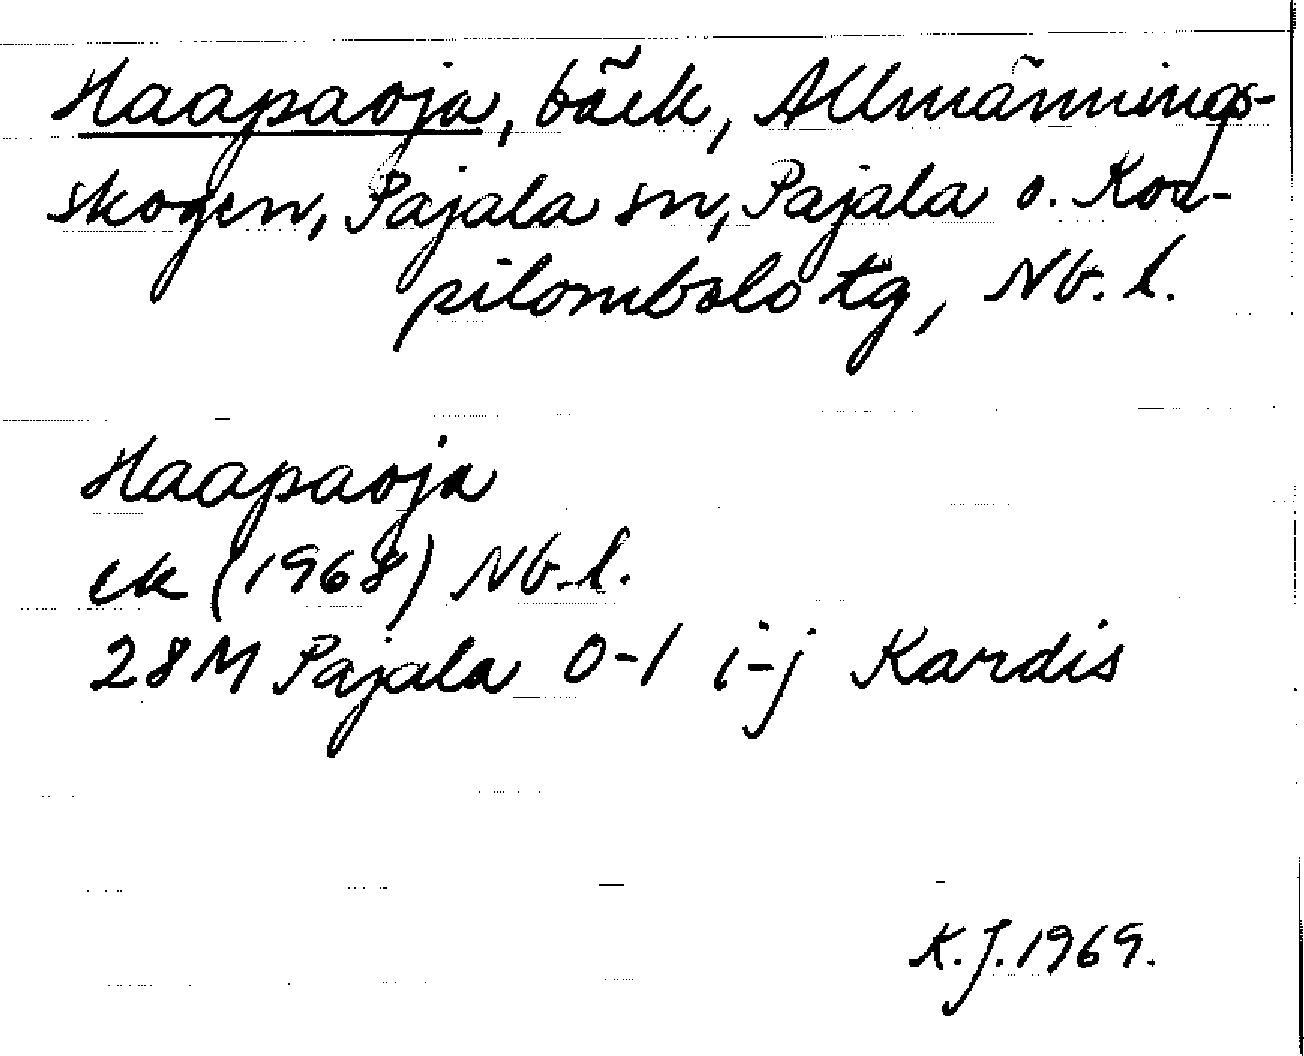 Haapaoja, bäck, Allmännings-
skogen, Pajala sn, Pajala o. Kor-
pilombolo tg, Nb. l.
Haapaoja
ek (1968) Nb. l.
28M Pajala 0-1 i-j Kardis
K.J. 1969.